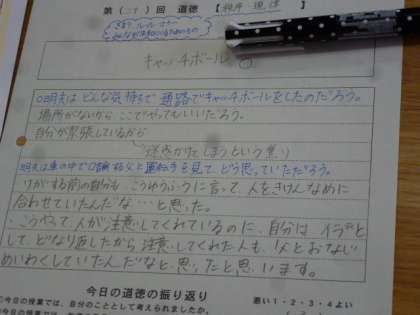 第(二十)回 道徳
きまり・ルール・マナー
みんなが気持ちよくいるためのもの
キャッチボール
○明夫はどんな気持ちで通路でキャッチボールをしたのだろう。
場所がないからここでやってもいいだろう。
自分が緊張しているから
迷惑がかかってしまうという焦り
明夫は車の中で口論する父と運転手を見て、どう思っていただろう。
けがする前の自分も、こうゆうふうに言って、人をきけんなめに
合わせていたんだな…と思った。
こうやって、人が注意してくれているのに、自分はイラッと
して、どなり返したから注意してくれた人も、父とおなじ
めいわくしていたんだなと、思ったと思います。
今日の道徳の振り返り
①今日の授業では、自分のこととして考えられましたか。
悪い1・2・3・4よい